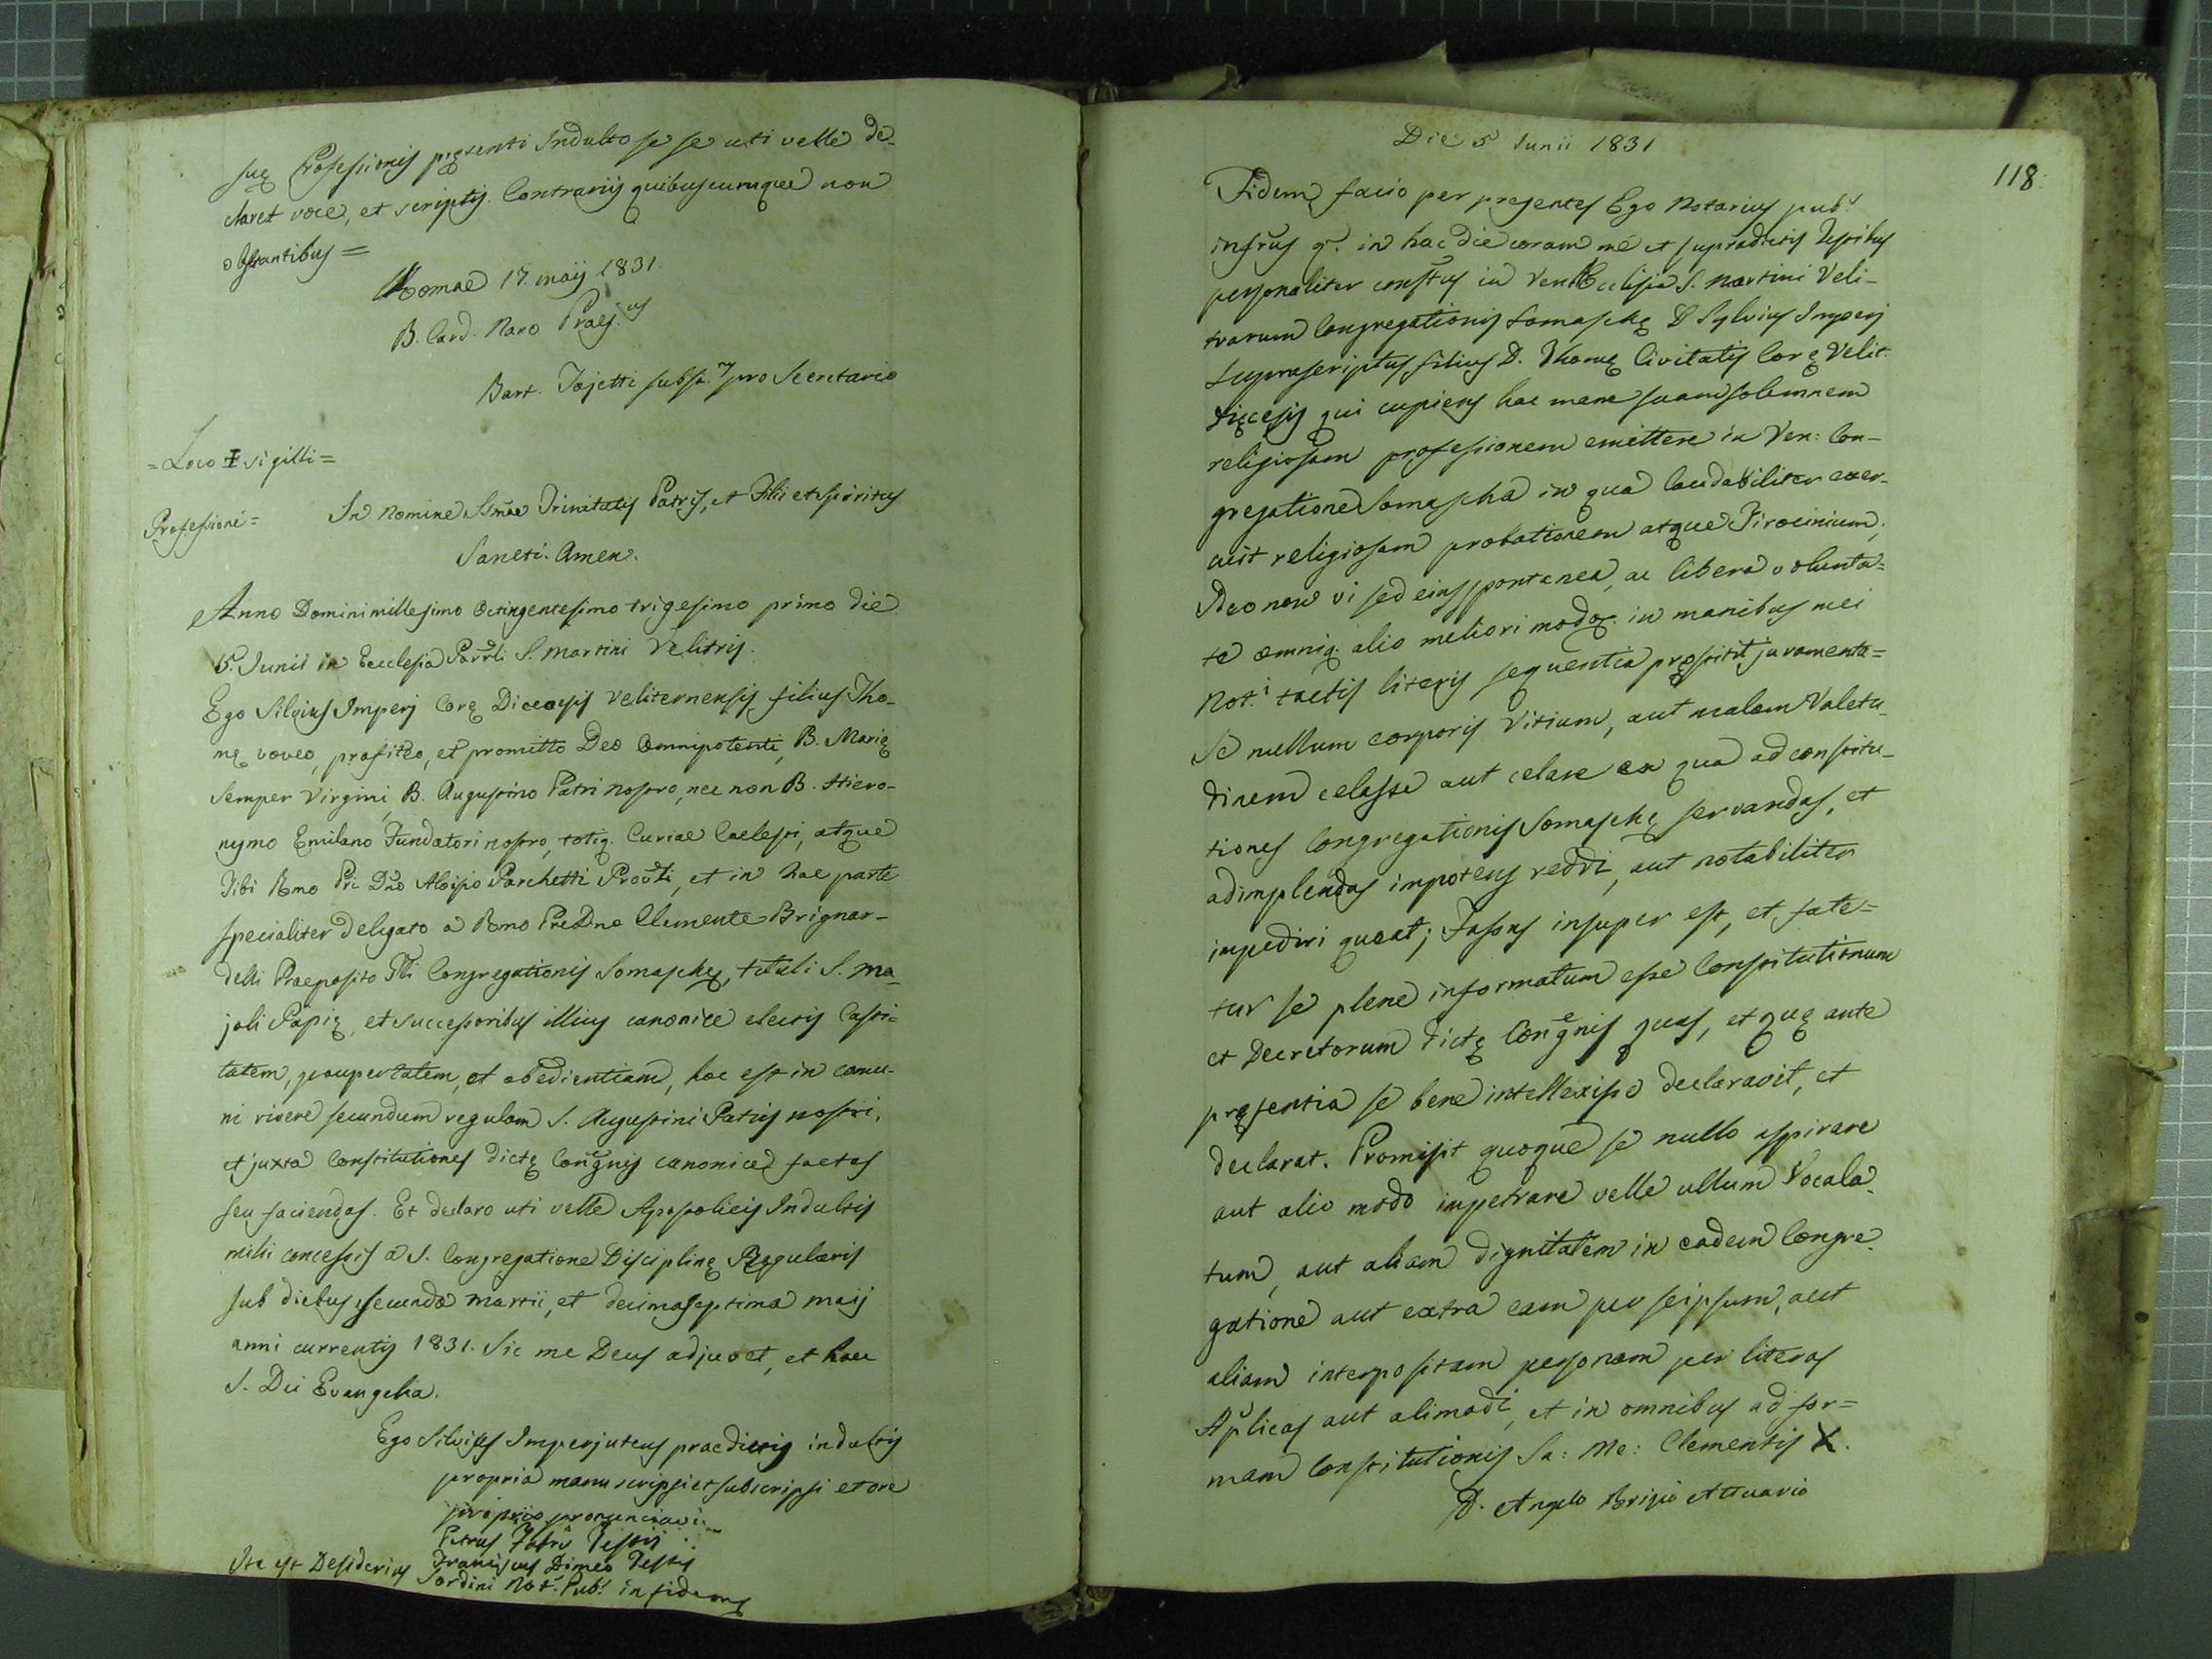 suę Professionis pręsenti Indulto se se uti velle de-
claret voce, et scriptis. Contrariis quibuscumque non
obstantibus =
Romae 17. maij 1831.
B. Card. Naro Praef.us
Bart. Tojetti subst. pro Secretario
= Loco ✠ sigilli =
Professione =
In Nomine SSmae Trinitatis Patris, et Filii et Spiritus
Sancti. Amen.
Anno Domini millesimo Octingentesimo trigesimo primo die
5. Junii in Ecclesia Parrli S. Martini Velitris.
Ego Silvius Imperj Corę Diecesis Veliternensis, filius Tho-
mę voveo, profiteo, et promitto Deo Omnipotenti, B. Marię
Semper Virgini, B. Augustino Patri nostro, nec non B. Hiero-
nymo Emilano Fundatori nostro, totiq. Curiae Caelesti, atque
Tibi Rmo Pri Dno Aloisio Parchetti Provli, et in hac parte
specialiter delegato a Rmo Pre Dno Clemente Brignar-
delli Praeposito Gli Congregationis Somaschę, tituli S. Ma-
joli Papię, et successoribus illius canonice electis Casti=
tatem, paupertatem, et obedientiam, hoc est in comu-
ni vivere secundum regulam S. Augustini Patris nostri,
et juxta Constitutiones dictę Congnis canonice factas
seu faciendas. Et declaro uti velle Apostolicis Indultis
mihi concessis a S. Congregatione Disciplinę Regularis
sub diebus secunda Martii, et decimaseptima Maij
anni currentis 1831. Sic me Deus adjuvet, et haec
S. Dei Evangelia.
Ego Silvius Imperj utens praedictis indultis
propria manu scripsi et subscripsi et ore
proprio pronunciavi
Petrus Fabri Testis
Franciscus Dimeo Testis
Ita est Desiderius Tordini Not. Pub. in fidem
118.
Die 5 Junii 1831
Fidem facio per presentes Ego Notarius pub.
infrus q. in hac die coram me et supradictis Testibus
personaliter constus in Ven. Ecclesia S. Martini Veli-
trarum Congregationis Somaschę D. Sylvius Imperj
suprascriptus, filius D. Thomę Civitatis Corę Velit.
Dięcesis qui cupiens hac mane suam solemnem
religiosam professionem emittere in Ven: Con-
gregatione Somascha in qua laudabiliter exer-
cuit religiosam probationem atque Tirocinium;
Ideo non vi sed eius spontanea, ac libera volunta=
te omniq. alio meliori modo. in manibus mei
Not.i tactis literis sequentia pręstitit juramenta=
Se nullum corporis vitium, aut malam Valetu-
dinem celasse aut celare ex qua ad constitu-
tiones Congregationis Somaschę servandas, et
adimplendas impotens reddi, aut notabiliter
impediri queat; Fassus insuper est, et fate=
tur se plene informatum esse Constitutionum
et Decretorum dictę Congnis quas, et quę ante
pręsentia se bene intellexisse declaravit, et
declarat. Promisit quoque se nullo aspirare
aut alio modo impetrare velle ullum Vocala-
tum, aut aliam dignitatem in eadem Congre-
gatione aut extra eam per seipsum, aut
aliam interpositam personam per literas
Aplicas aut alimodi, et in omnibus ad for=
mam Constitutionis Sa: Me: Clementis X.
D. Angelo Brigio Attuario